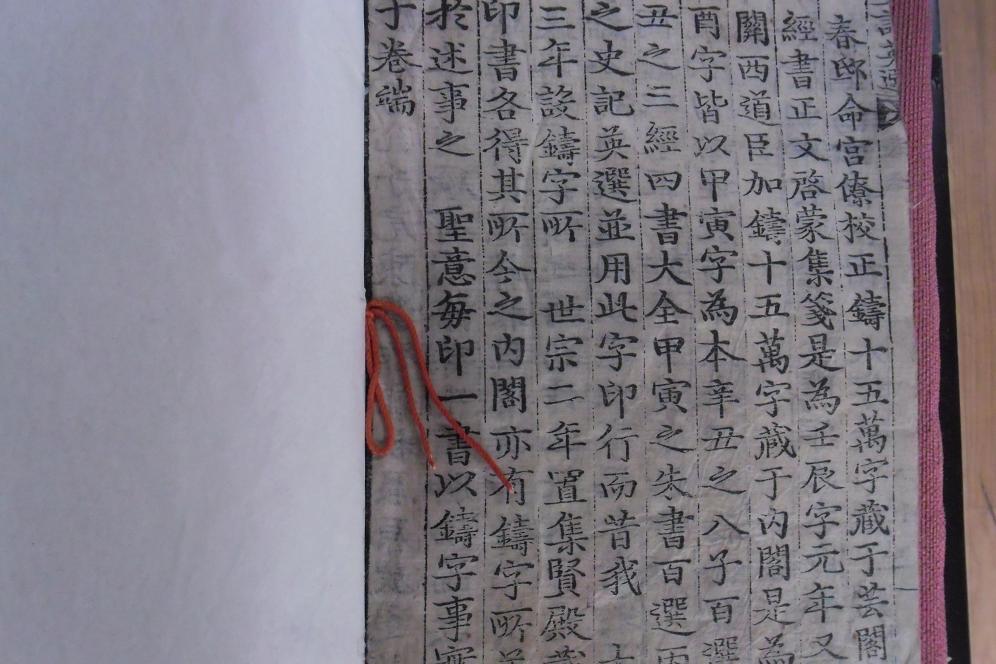 史記英選
春邸命宮僚校正鑄十五萬字藏于芸閣
經書正文啓蒙集箋是為壬辰字元年又
關西道臣加鑄十五萬字藏于內閣是為
酉字皆以甲寅字為本辛丑之八子百選
丑之三經四書大全甲寅之朱書百選丙
之史記英選並用此字印行而昔我
三年設鑄字所 世宗二年置集賢殿
印書各得其所今之內閣亦有鑄字所
於述事之 聖意每印一書以鑄字事實
于卷端